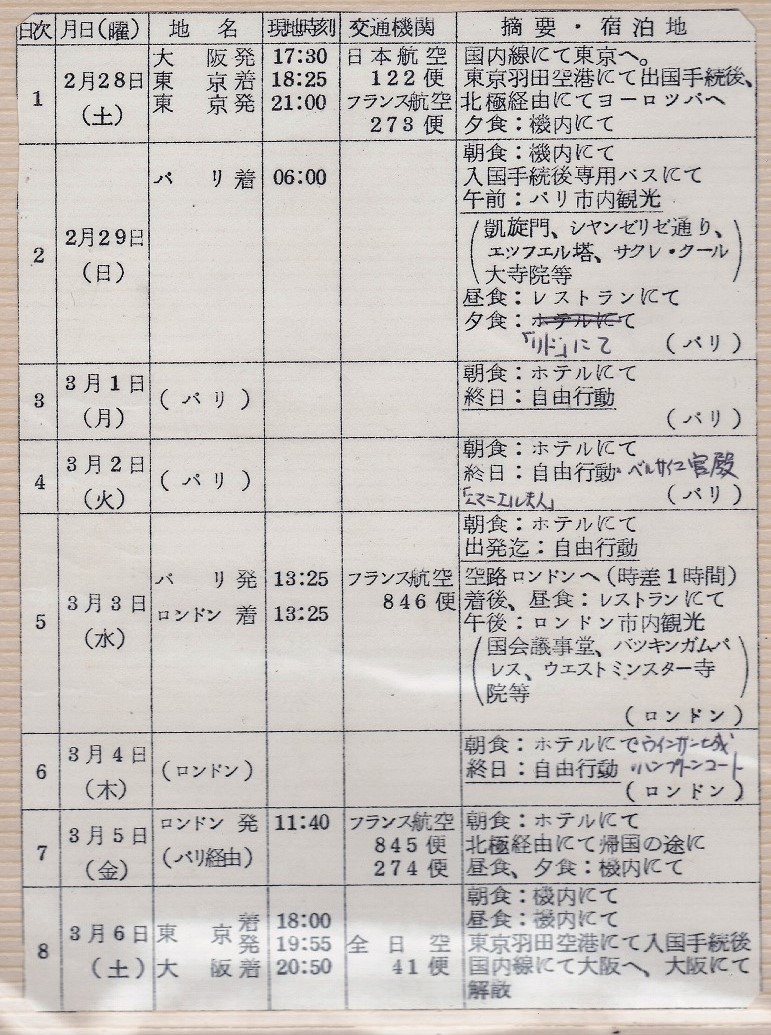 日次 月日(曜) 地名 現地時刻 交通機関 摘要・宿泊地
1
2月28日
(土)
大阪発 17:30 日本航空
東京着 18:25 122便
東京発 21:00 フランス航空
273便
国内線にて東京へ。
東京羽田空港にて出国手続後、
北極経由にてヨーロツパへ
夕食:機内にて
2
2月29日
(日)
パリ着 06:00
朝食:機内にて
入国手続後専用バスにて
午前:パリ市内観光
(凱旋門、シヤンゼリゼ通り、
エツフエル塔、サクレ・クール
大寺院等)
昼食:レストランにて
夕食:ホテルにて
「リド」にて (パリ)
3
3月1日
(月)
(パリ)
朝食:ホテルにて
終日:自由行動
(パリ)
4
3月2日
(火)
(パリ)
朝食:ホテルにて
終日:自由行動 ベルサイユ宮殿
「エマニエル夫人」 (パリ)
5
3月3日
(水)
パリ発 13:25 フランス航空
ロンドン着 13:25 846便
朝食:ホテルにて
出発迄:自由行動
空路ロンドンへ(時差1時間)
着後、昼食:レストランにて
午後:ロンドン市内観光
(国会議事堂、バツキンガムパ
レス、ウエストミンスター寺
院等)
(ロンドン)
6
3月4日
(木)
(ロンドン)
朝食:ホテルにて ウインザー城
終日:自由行動 ・ハンプトンコート
(ロンドン)
7
3月5日
(金)
ロンドン発 11:40 フランス航空
(パリ経由) 845便
274便
朝食:ホテルにて
北極経由にて帰国の途に
昼食、夕食:機内にて
8
3月6日
(土)
東京着 18:00
発 19:55 全日空
大阪着 20:50 41便
朝食:機内にて
昼食:機内にて
東京羽田空港にて入国手続後
国内線にて大阪へ、大阪にて
解散